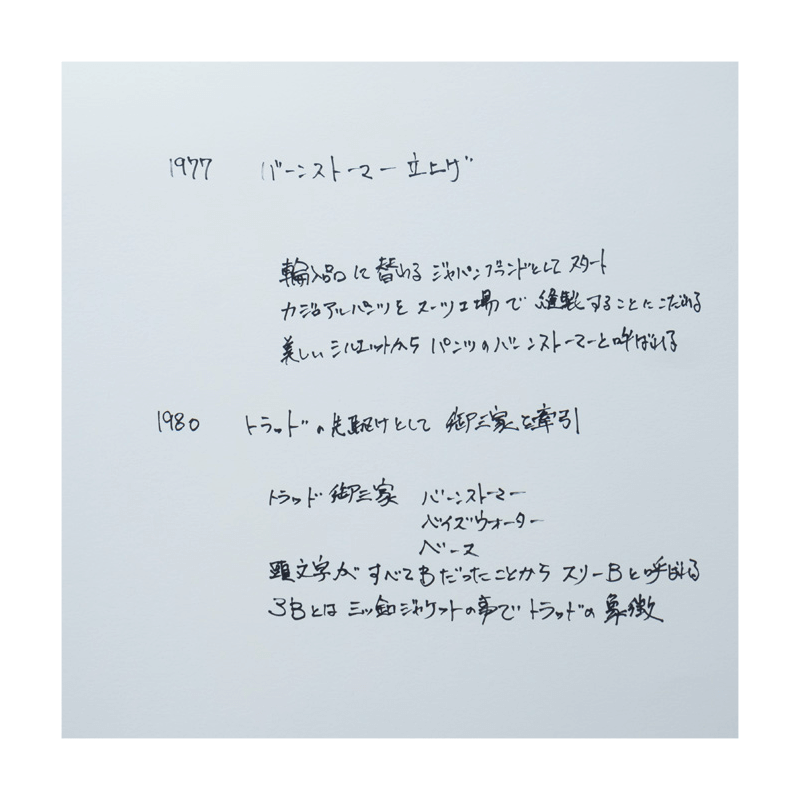 1977 バーンストーマー立上げ
輸入品に替わるジャパンブランドとしてスタート
カジュアルパンツをスーツ工場で縫製することにこだわる
美しいシルエットからパンツのバーンストーマーと呼ばれる
1980 トラッドの先駆けとして御三家を牽引
トラッド御三家 バーンストーマー
ベイズウォーター
ベース
頭文字がすべてBだったことからスリーBと呼ばれる
3Bとは三ッ釦ジャケットの事でトラッドの象徴